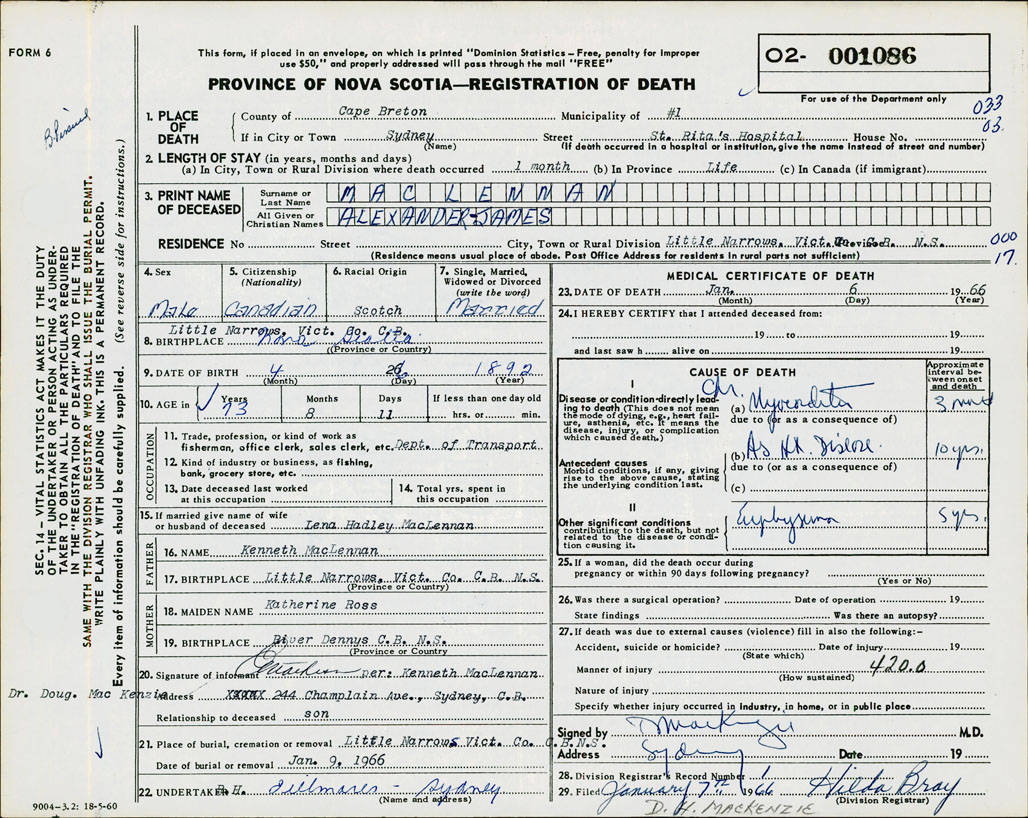 FORM 6
This form, if placed in an envelope, on which is printed "Dominion Statistics – Free, penalty for improper
use $50," and properly addressed will pass through the mail "FREE"
02- 001086
PROVINCE OF NOVA SCOTIA—REGISTRATION OF DEATH
For use of the Department only
033
03.
1. PLACE OF DEATH
County of Cape Breton Municipality of #1
If in City or Town Sydney Street St. Rita's Hospital House No.
(Name) (If death occurred in a hospital or institution, give the name instead of street and number)
2. LENGTH OF STAY (in years, months and days)
(a) In City, Town or Rural Division where death occurred 1 month (b) In Province Life (c) In Canada (if immigrant)
3. PRINT NAME OF DECEASED
Surname or Last Name MAC LENNAN
All Given or Christian Names ALEXANDER JAMES
RESIDENCE No Street City, Town or Rural Division Little Narrows, Vict. Co. C.B. N.S.
(Residence means usual place of abode. Post Office Address for residents in rural parts not sufficient)
000
17.
4. Sex Male
5. Citizenship (Nationality) Canadian
6. Racial Origin Scotch
7. Single, Married, Widowed or Divorced (write the word) Married
Little Narrows, Vict. Co. C.B.
8. BIRTHPLACE Nova Scotia
(Province or Country)
9. DATE OF BIRTH 4 26 1892
(Month) (Day) (Year)
10. AGE in Years Months Days If less than one day old
73 8 11 hrs. or min.
OCCUPATION
11. Trade, profession, or kind of work as
fisherman, office clerk, sales clerk, etc. Dept. of Transport
12. Kind of industry or business, as fishing,
bank, grocery store, etc.
13. Date deceased last worked at this occupation
14. Total yrs. spent in this occupation
15. If married give name of wife
or husband of deceased Lena Hadley MacLennan
FATHER
16. NAME Kenneth MacLennan
17. BIRTHPLACE Little Narrows, Vict. Co. C.B. N.S.
(Province or Country)
MOTHER
18. MAIDEN NAME Katherine Ross
19. BIRTHPLACE River Dennys C.B. N.S.
(Province or Country)
20. Signature of informant per: Kenneth MacLennan
Dr. Doug. Mac Kenzie
Address XXXXX 244 Champlain Ave., Sydney, C.B.
Relationship to deceased son
21. Place of burial, cremation or removal Little Narrows Vict. Co. C.B.N.S.
Date of burial or removal Jan. 9, 1966
22. UNDERTAKER Sydney
(Name and address)
9004-3.2: 18-5-60
MEDICAL CERTIFICATE OF DEATH
23. DATE OF DEATH Jan. 6 1966
(Month) (Day) (Year)
24. I HEREBY CERTIFY that I attended deceased from:
19 to 19
and last saw h alive on 19
CAUSE OF DEATH
Approximate interval between onset and death
I
Disease or condition directly leading to death (This does not mean the mode of dying, e.g., heart failure, asthenia, etc. It means the disease, injury, or complication which caused death.)
Chr.
(a) Myocarditis
due to (or as a consequence of)
(b) As Ht. Disease 10 yrs.
Antecedent causes
Morbid conditions, if any, giving rise to the above cause, stating the underlying condition last.
due to (or as a consequence of)
(c)
II
Other significant conditions
contributing to the death, but not related to the disease or condition causing it.
Emphysema 5 yrs.
25. If a woman, did the death occur during
pregnancy or within 90 days following pregnancy?
(Yes or No)
26. Was there a surgical operation? Date of operation 19
State findings Was there an autopsy?
27. If death was due to external causes (violence) fill in also the following:–
Accident, suicide or homicide? Date of injury 19
(State which)
Manner of injury 420.0
(How sustained)
Nature of injury
Specify whether injury occurred in industry, in home, or in public place
Signed by D MacKenzie M.D.
Address Sydney Date 19
28. Division Registrar's Record Number 1
29. Filed January 7th 1966 Hilda Bray
(Division Registrar)
D. H. MACKENZIE
SEC. 14 – VITAL STATISTICS ACT MAKES IT THE DUTY
OF THE UNDERTAKER OR PERSON ACTING AS UNDER-
TAKER TO OBTAIN ALL THE PARTICULARS REQUIRED
IN THE "REGISTRATION OF DEATH" AND TO FILE THE
SAME WITH THE DIVISION REGISTRAR WHO SHALL ISSUE THE BURIAL PERMIT.
WRITE PLAINLY WITH UNFADING INK. THIS IS A PERMANENT RECORD.
Every item of information should be carefully supplied. (See reverse side for instructions.)